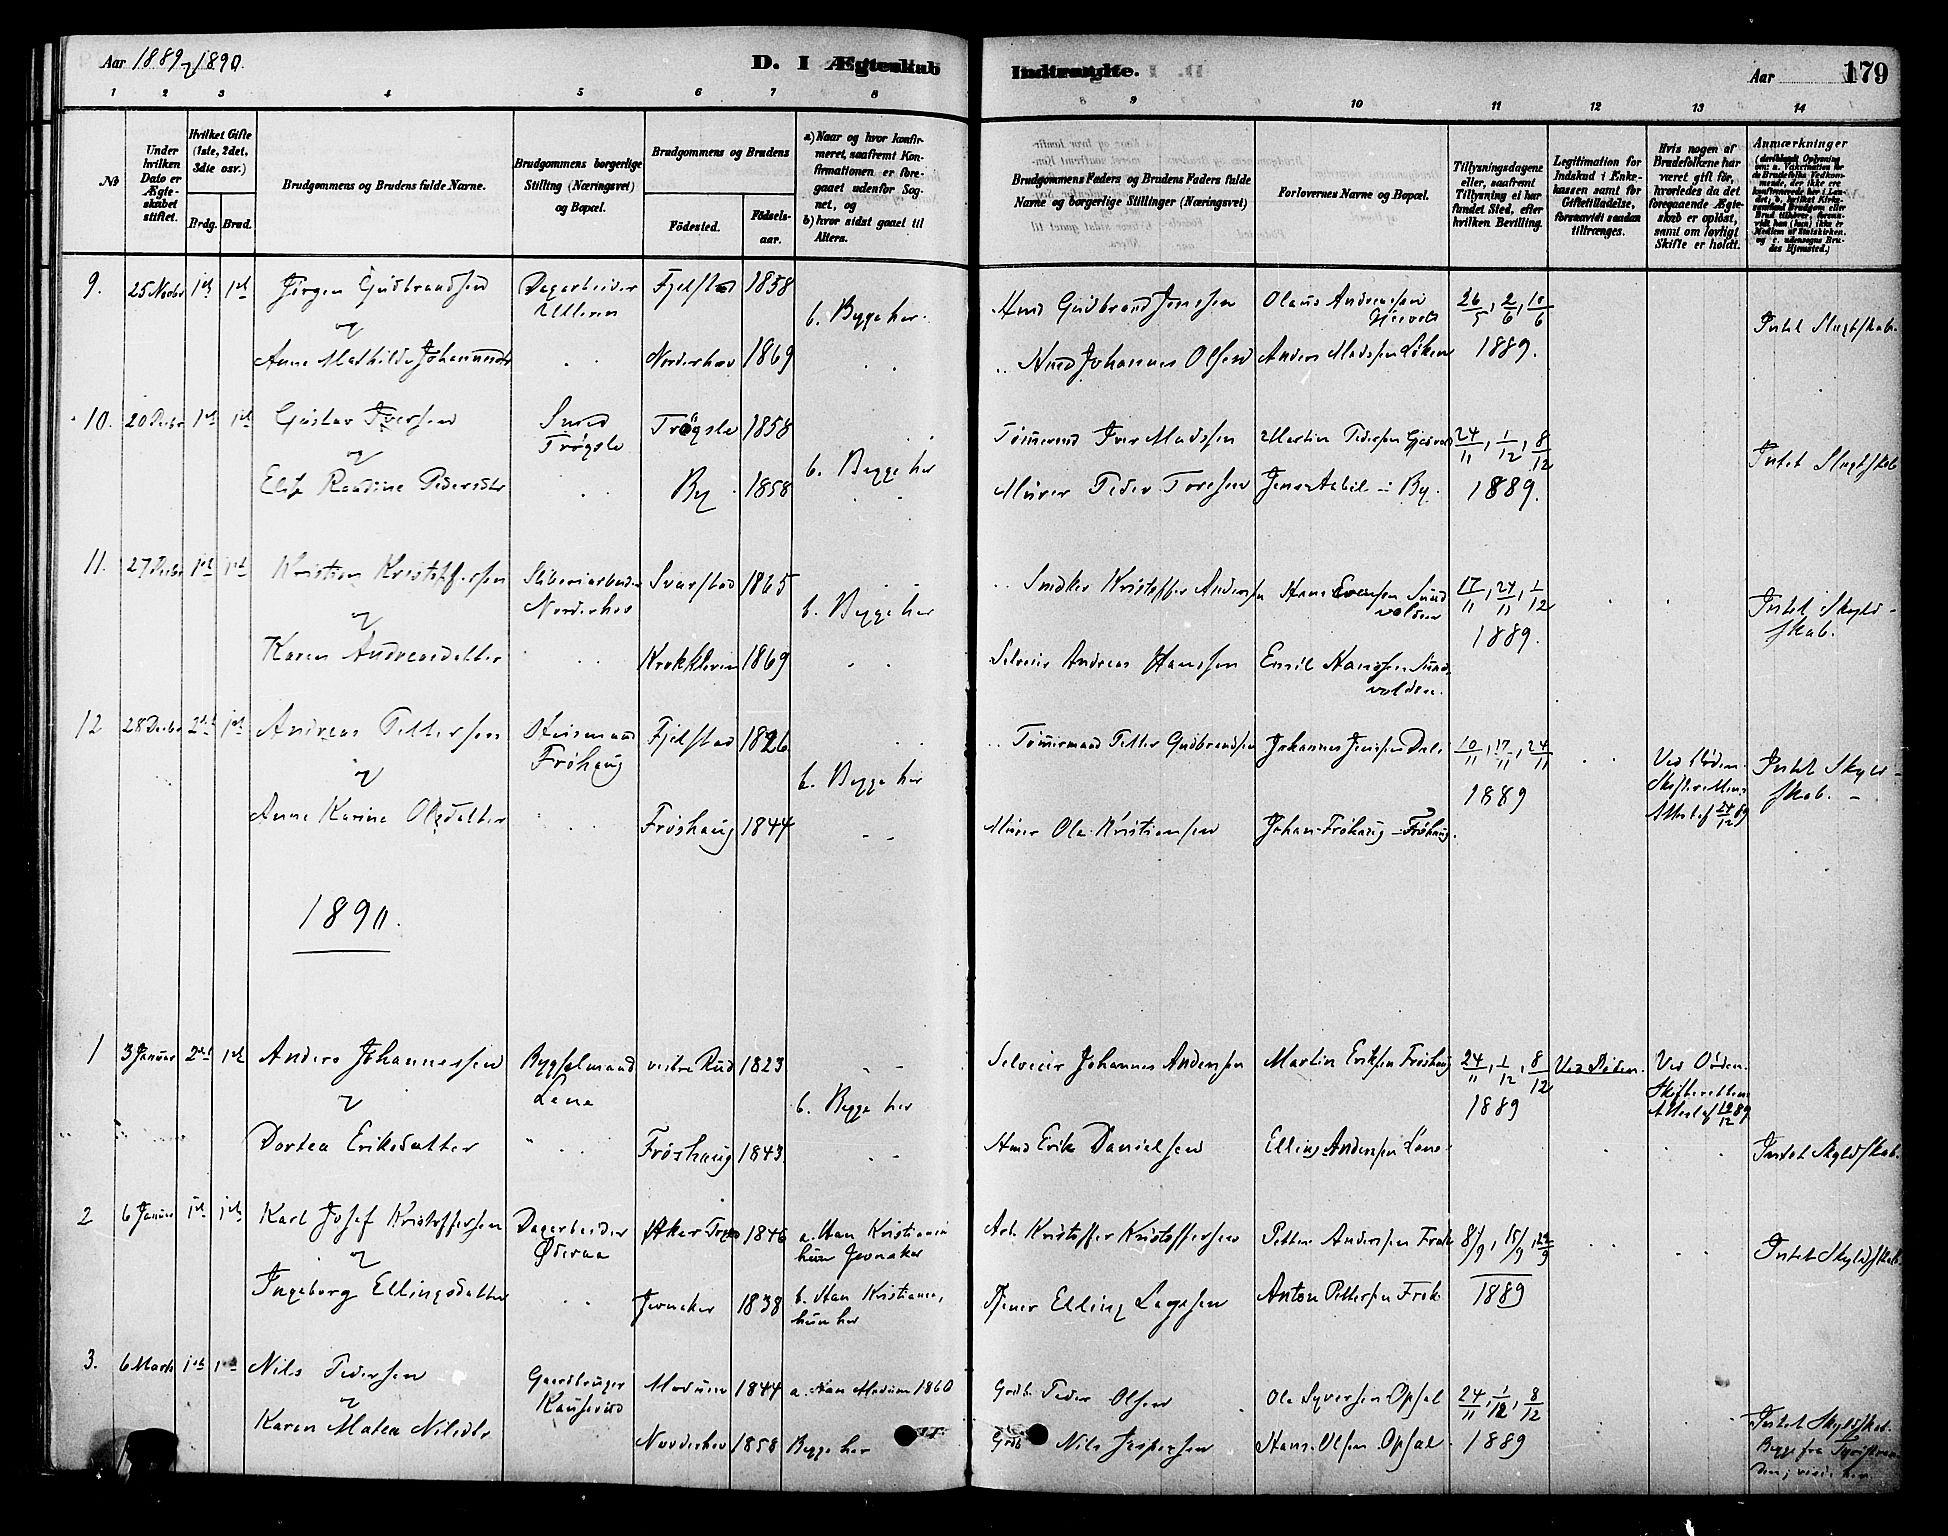 Aar 1889 1890.
D. I Ægteskab
Indtraadte.
Aar
179
1 2 3 4 5 6 7 8
8 9 10 11 12 13 14
№
Under hvilken Dato er Ægteskabet stiftet.
Hvilket Gifte (1ste, 2det, 3die osv.)
Brdg. Brud.
Brudgommens og Brudens fulde Navne.
Brudgommens borgerlige Stilling (Næringsvei) og Bopæl.
Brudgommens og Brudens
Födested.
Födsels-aar.
a) Naar og hvor konfirmeret, saafremt Konfirmationen er foregaaet udenfor Sognet, og
b) hvor sidst gaaet til Alters.
Brudgommens Faders og Brudens Faders fulde Navne og borgerlige Stillinger (Næringsvei)
Forlovernes Navne og Bopæl.
Tillysningsdagene eller, saafremt Tillysning ei har fundet Sted, efter hvilken Bevilling.
Legitimation for Indskud i Enkekassen samt for Giftetilladelse, forsaavidt saadan tiltrænges.
Hvis nogen af Brudefolkene har været gift før, hvorledes da det foregaaende Ægteskab er opløst, samt om lovligt Skifte er holdt.
Anmærkninger
9. 25 Novbr 1ste 1ste Jörgen Gudbrandsen Dagarbeider Ulleren Fjelstad 1858 b. Begge her. Hmd Gudbrand Jensen Olaus Andersen 26/5, 2/6, 10/6 1889. Intet Slegtskab.
Anne Mathilde Johannesdtr Norderhov 1869 Hmd Johannes Olsen Anders Madssen Löken
10. 20 Decbr 1ste 1ste Gustav Iversen Smed Trögsle Trögsle 1858 b. Begge her Tömmermd Iver Madssen Martin Pedersen 24/11, 1/12, 8/12 1889. Intet Slegtskab
Elise Randine Pedersdtr By 1858 Murer Peder Toresen
11. 27 Decbr 1ste 1ste Kristian Kristoffersen Sliberiarbeider Norderhov Svarstad 1865 b. Begge her Snedker Kristoffer Andersen Hans Evensen Sundvolden 17/11, 24/11, 1/12 1889. Intet Skyldskab.
Karen Andreasdatter Krokkleven 1869 Selveier Andreas Hanssen Emil Hanssen Sundvolden.
12 28 Decbr 2det 1ste Andreas Pettersen Huismand Fröhaug Fjelstad 1826 b. Begge her Tömmermand Petter Gudbrandsen Johannes Jenssen Dale 10/11, 17/11, 24/11 1889 Ved Döden. Skifterettens Attest af 24/12 89 Intet Skyldskab.
Anne Karine Olsdatter Fröshaug 1844 Murer Ole Kristiansen Johan Fröhaug Fröhaug.
1890.
1 3 Januar 2det 1ste Anders Johannessen Bygselmand Lene vestre Rud 1823 b. Begge her Selveier Johannes Andersen Martin Eriksen Fröshaug 24/11, 1/12, 8/12 1889 Ved Döden. Ved Döden. Skifterettens Attest af 19/12 89
Dortea Eriksdatter Fröshaug 1843 Hmd Erik Danielsen Elling Andersen Lene Intet Skyldskab.
2 6 Januar 1ste 1ste Karl Josef Kristoffersen Dagarbeider Aker 1846 a. Han Kristiania hun Jevnaker Arb. Kristoffer Kristoffersen Petter Andersen Frok 8/9, 15/9, 22/9 1889 Intet Skyldskab.
Ingeborg Ellingsdatter Jevnaker 1838 b. Han Kristiania, hun her Elling Lagesen Anton Pettersen Frok
3. 6 Marts 1ste 1ste Nils Pedersen Gaardbruger Modum 1844 a. Han Modum 1860 Grdb. Peder Olsen Ole Syversen Opsal 24/11, 1/12, 8/12 1889
Karen Matea Nilsdtr Norderhov 1858 Begge her Grdb Nils Jespersen Hans Olsen Opsal Intet Skyldskab. Begge fra Tyristranden, viede her.